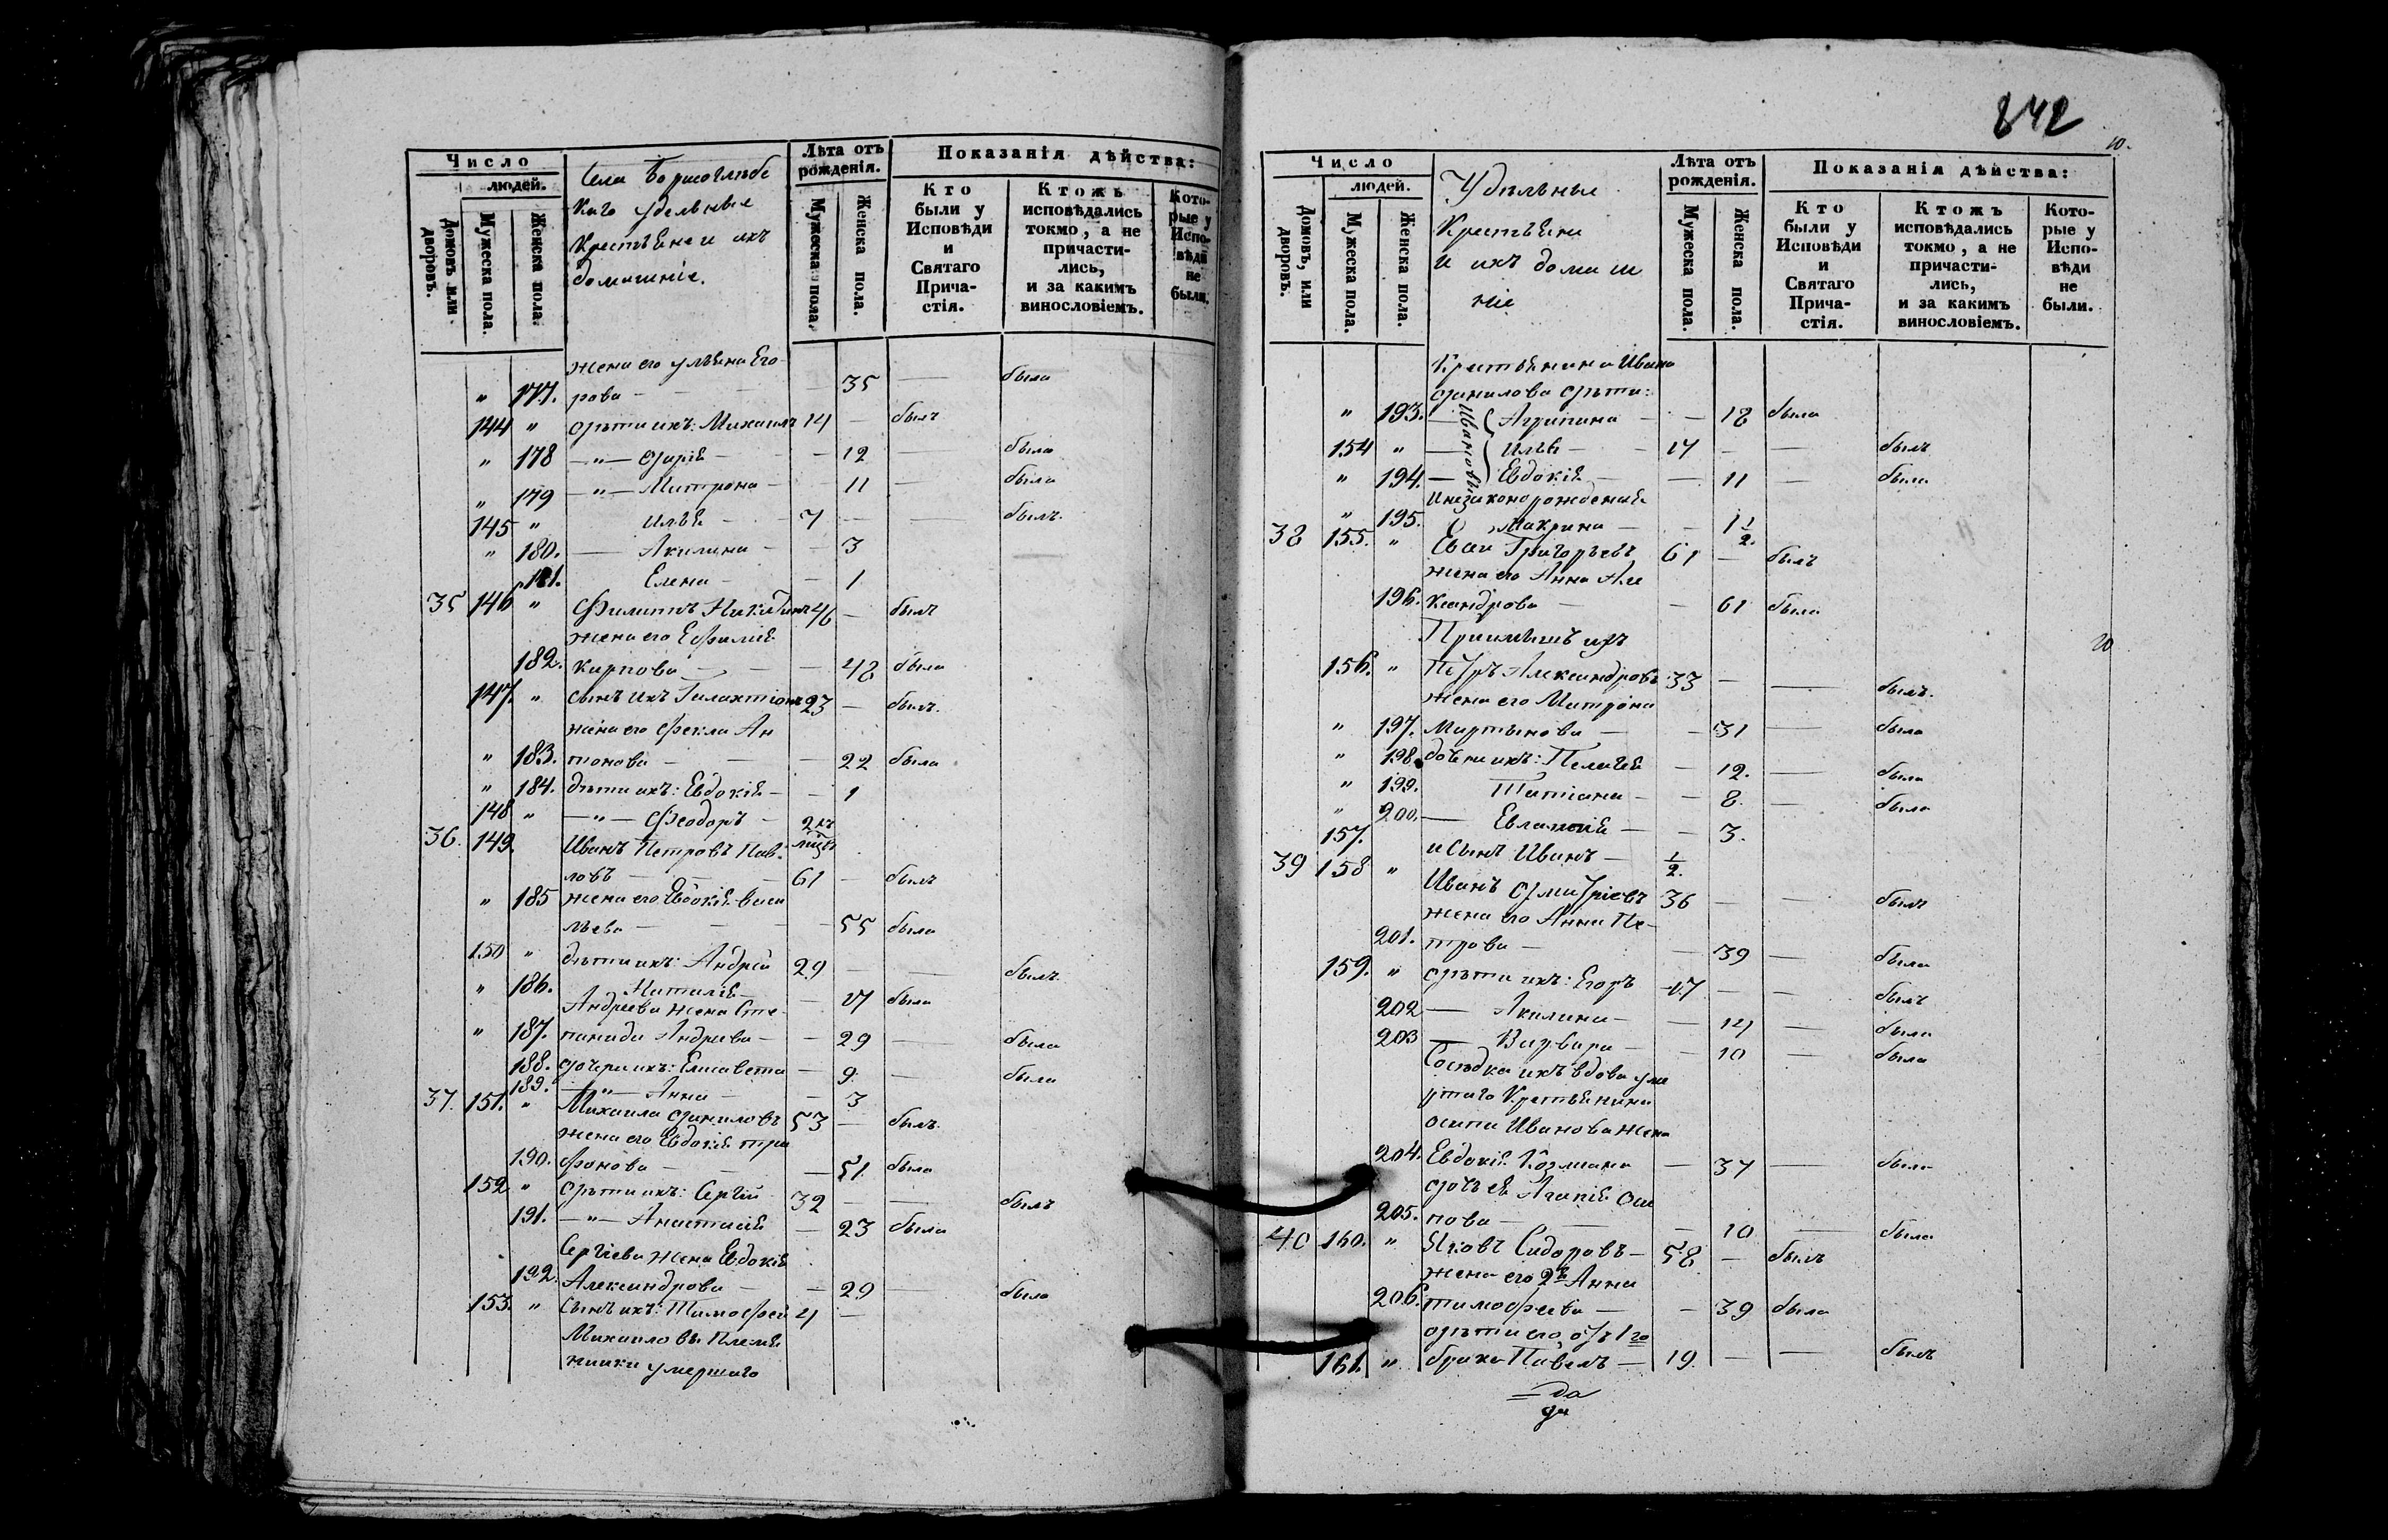 Число
людей.
Домовъ или дворовъ.
Мужеска пола.
Женска пола.
Села Борисоглѣбс
каго удельные
Крестьяне и ихъ
домашніе.
Лѣта отъ рожденія.
Мужеска пола.
Женска пола.
Показанія дѣйства:
Кто были у Исповѣди и Святаго Прича- стія.
Ктожъ исповѣдались токмо, а не причасти- лись, и за какимъ винословіемъ.
Кото- рые у Испо- вѣди не были.
жена его Ульяна Его
" 177. рова — — 35 — была
144 " дѣти ихъ: Михаилъ 14 — былъ
" 178 —"— Дарія — — 12 — была
" 179 —"— Матрона — 11 — была
145 " Илья — 7 — — былъ.
" 180. — Акилина — — 3
181. Елена — — 1
35 146 " Филиппъ Никитинъ 46 — былъ
жена его Евфимія
182. Карпова — — — 48 была
147. " сынъ ихъ Галактіонъ 23 — былъ.
жена его Фекла Ан
" 183. тонова — — — 22 была
" 184. дѣти ихъ: Евдокія — — 1
148 " —"— Феодоръ —
36. 149. Иванъ Петровъ Пав-
ловъ — — — 61 — былъ
" 185 жена его Евдокія Васи
льева — — — — 55 была
150 " дѣти ихъ: Андрей 29 — — былъ
" 186. Наталія — — 17 была
Андреева жена Сте-
" 187. панида Андреева — — 29 — была
188. дочери ихъ: Елисавета — 9. — была
189. —"— Анна — — 3
37. 151. " Михаила Даниловъ 53 — былъ.
жена его Евдокія Три
190. фонова — — — 51. была
152 " дѣти ихъ: Сергій 32 — — былъ
191. —"— Анастасія — 23 была
Сергіева жена Евдокія
192. Александрова — — 29 — была
153. " Сынъ ихъ: Тимофей 4 —
Михаиловы Племя
нники умершаго
842
10.
Число
людей.
Домовъ, или дворовъ.
Мужеска пола.
Женска пола.
Удѣльные
Крестьяне
и ихъ домаш
ніе
Лѣта отъ рожденія.
Мужеска пола.
Женска пола.
Показанія дѣйства:
Кто были у Исповѣди и Святаго Прича- стія.
Ктожъ исповѣдались токмо, а не причасти- лись, и за какимъ винословіемъ.
Кото- рые у Испо- вѣди не были.
Крестьянина Ивана
Данилова дѣти:
Ивановы
" 193. — Агрипина — — 18 была
154 " — Илья — — 14 — — былъ
" 194. — Евдокія — — 11 — была
И незаконорожденная
" 195. Макрина — — 1 1/2.
38 155. " Евсей Григорьевъ 61 — былъ
жена его Анна Але
196. ксандрова — — 61 была
Приимышъ ихъ
20
156. " Петръ Александровъ 33 — — былъ.
жена его Матрона
" 197. Мартынова — — 31 — была
" 198. дочери ихъ: Пелагея — 12. — была
" 199. Татіана — — 8. — была
" 200. — Евлампія — — 3.
157. и сынъ Иванъ — 1/2.
39 158 " Иванъ Дмитріевъ 36 — — былъ
жена его Анна Пе-
201. трова — — 39 — была
159. " дѣти ихъ: Егоръ — 17 — — былъ
202 — Акилина — — 14 — была
203 — Варвара — — 10 — была
Сосѣдка ихъ вдова уме
ршаго Крестьянина
Осипа Иванова жена
204. Евдокія Козмина — 37 — была
дочь ея Агапія Оси
205. пова — — — 10 — была
40 160. " Яковъ Сидоровъ — 58 — былъ
жена его 2я Анна
206. Тимофеева — — 39 была
дѣти его отъ 1го
161. " брака Павелъ — 19. — — былъ